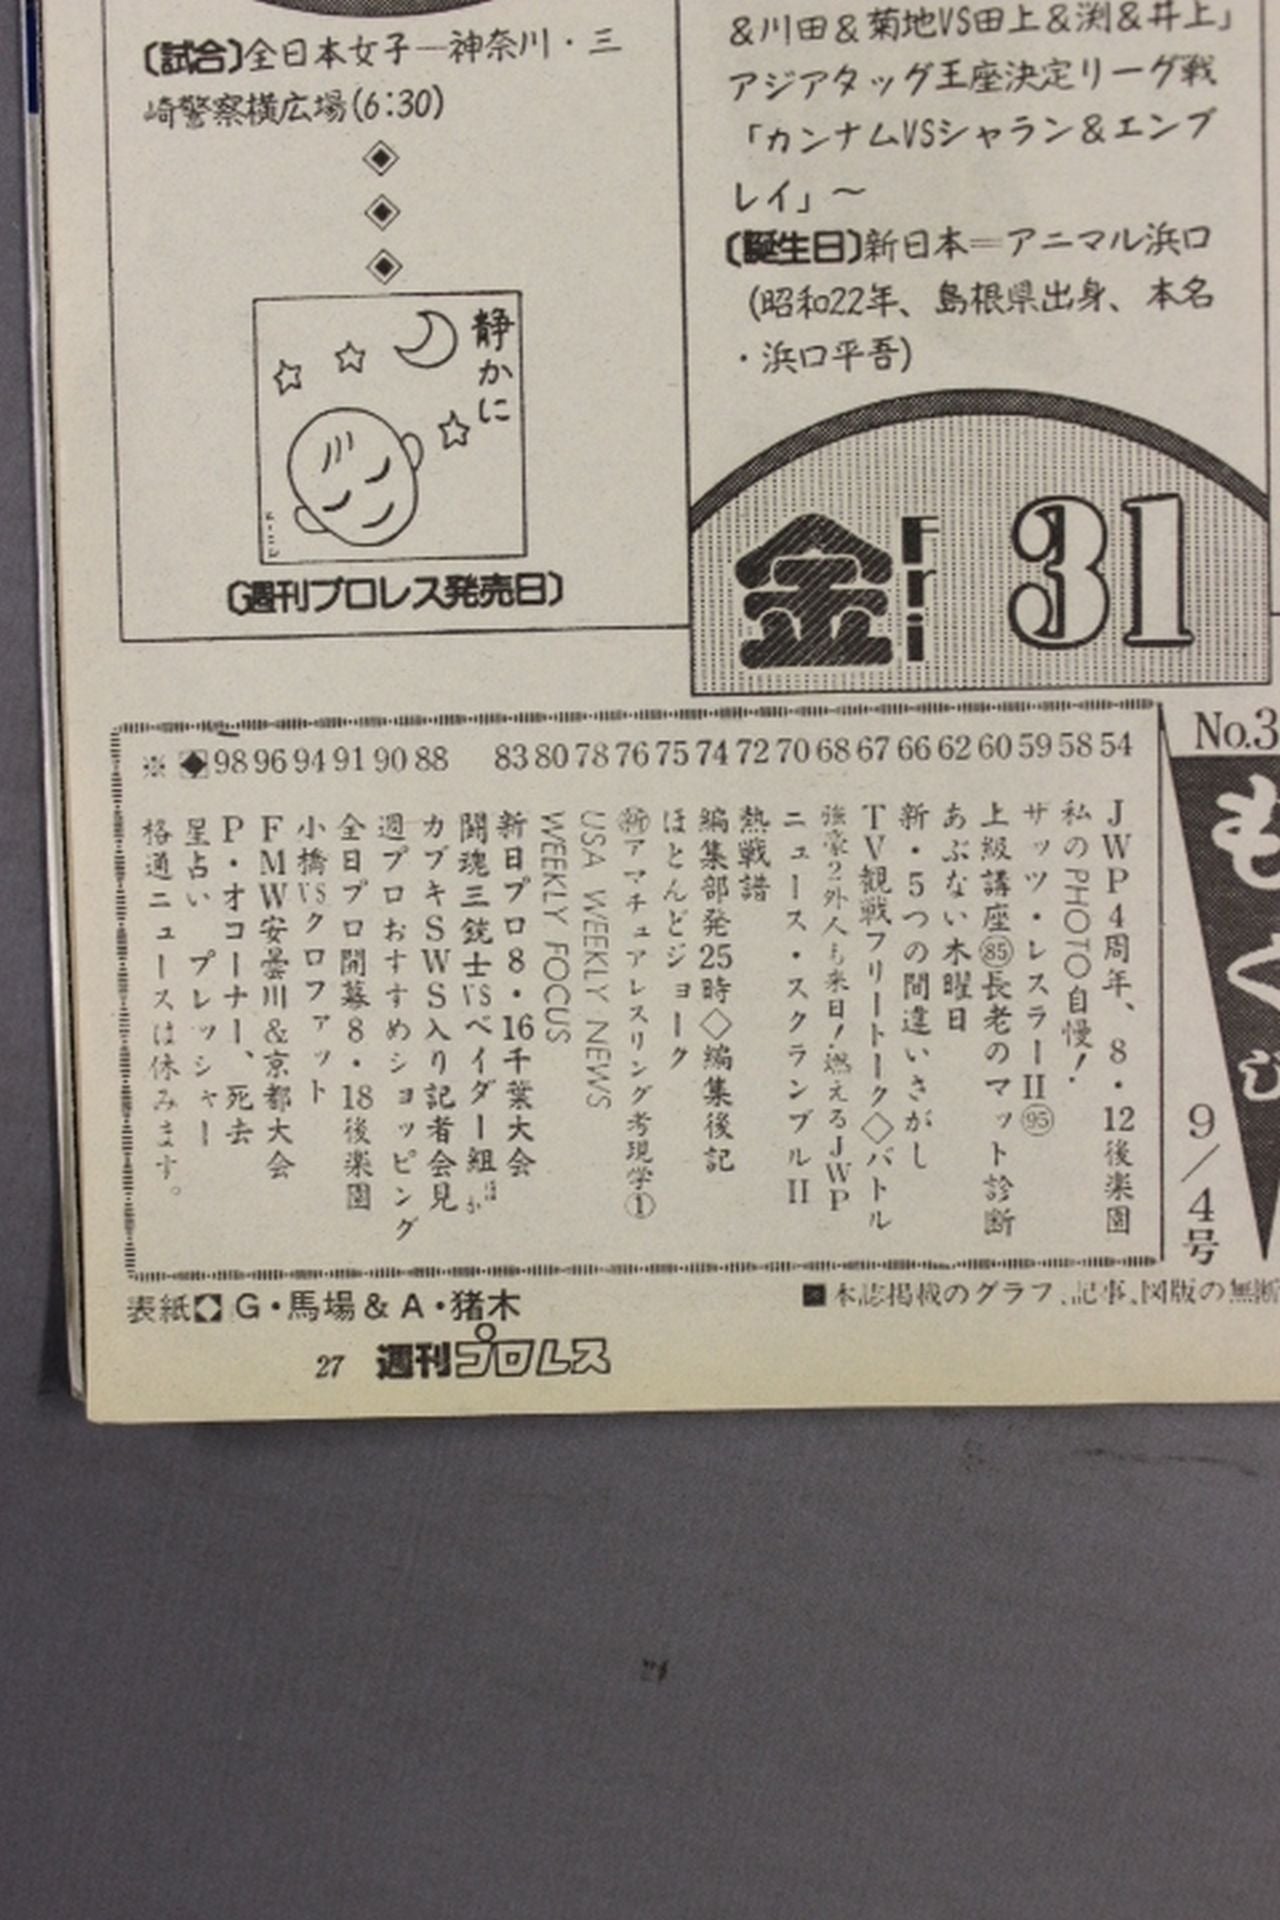 〔試合〕全日本女子―神奈川・三
崎警察横広場(6:30)
静かに
〔週刊プロレス発売日〕
&川田&菊地VS田上&渕&井上」
アジアタッグ王座決定リーグ戦
「カンナムVSシャラン&エンブ
レイ」〜
〔誕生日〕新日本=アニマル浜口
(昭和22年、島根県出身、本名
・浜口平吾)
金 Fri 31
No.3
もくじ
9/4号
54 JWP4周年、8・12後楽園
58 私のPHOTO自慢!
59 ザッツ・レスラーII95
60 上級講座85長老のマット診断
62 あぶない木曜日
66 新・5つの間違いさがし
67 TV観戦フリートーク◇バトル
68 強豪2外人も来日!燃えるJWP
70 ニュース・スクランブルII
72 熱戦譜
74 編集部発25時◇編集後記
75 ほとんどジョーク
76 新アマチュアレスリング考現学①
78 USA WEEKLY NEWS
80 WEEKLY FOCUS
83 新日プロ8・16千葉大会
闘魂三銃士VSベイダー組ほか
88 カブキSWS入り記者会見
90 週プロおすすめショッピング
91 全日プロ開幕8・18後楽園
94 小橋VSクロファット
96 FMW安曇川&京都大会
98 P・オコーナー、死去
◆ 星占い プレッシャー
※ 格通ニュースは休みます。
表紙◆G・馬場&A・猪木
■本誌掲載のグラフ、記事、図版の無断
27 週刊プロレス